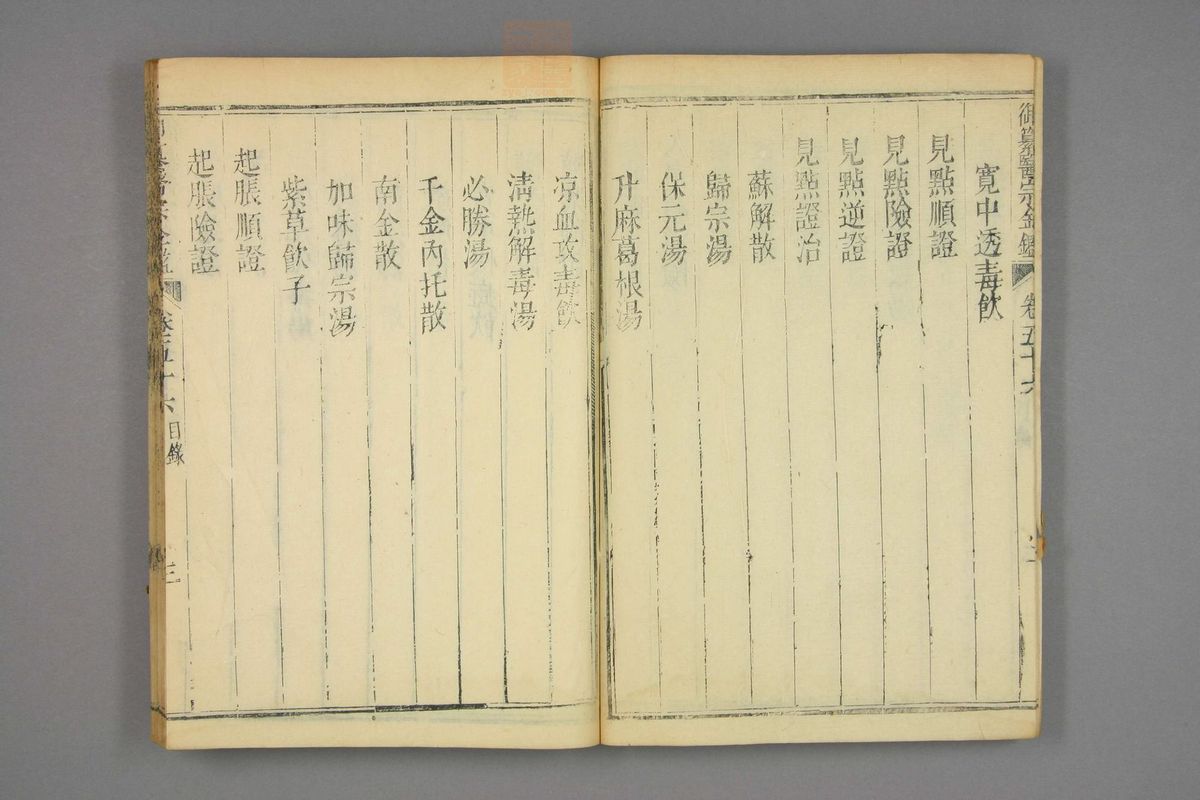 御纂醫宗金鑑 卷五十六
寬中透毒飲
見點順證
見點險證
見點逆證
見點證治
蘇解散
歸宗湯
保元湯
升麻葛根湯
凉血攻毒飲
清熱解毒湯
必勝湯
千金內托散
南金散
加味歸宗湯
紫草飲子
起脹順證
起脹險證
卷五十六 目錄 三